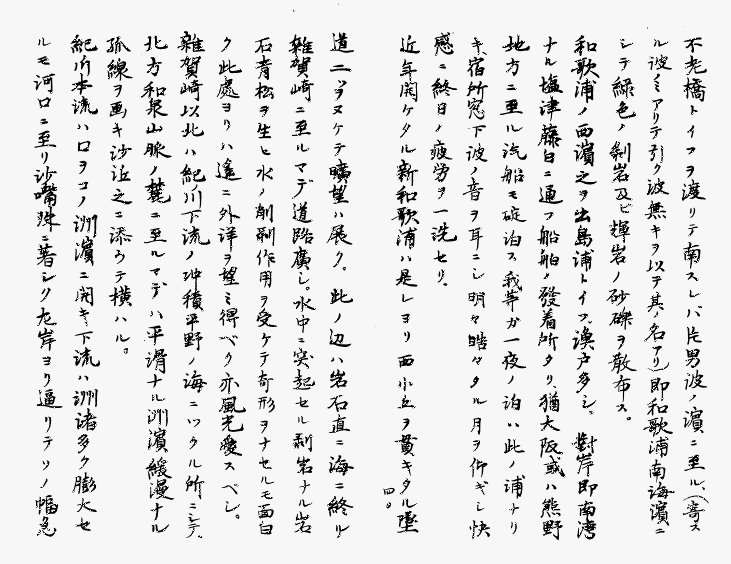 不老橋トイフヲ渡リテ南スレバ片男波ノ濱ニ至ル、(寄ス
ル波ノミアリテ引ク波無キヲ以テ其ノ名アリ)即和歌浦南海濱ニ
シテ緑色ノ剝岩及ビ輝岩ノ砂礫ヲ散布ス。
和歌浦ノ西濱之ヲ出島浦トイフ、漁戸多シ。對岸即南湾
ナル塩津藤白ニ通フ船舶ノ發着所タリ、猶大阪或ハ熊野
地方ニ至ル汽船モ碇泊ス我等ガ一夜ノ泊ハ此ノ浦ナリ
キ、宿所窓下波ノ音ヲ耳ニシ明々皓々タル月ヲ仰ギシ快
感ニ終日ノ疲労ヲ一洗セリ。
近年開ケタル新和歌浦ハ是レヨリ西小丘ヲ貫キタル墜
四。
道二ツヲヌケテ曠望ハ展ク。此ノ辺ハ岩石直ニ海ニ終リ
雑賀崎ニ至ルマデ道路廣シ。水中ニ突起セル剝岩ナル岩
石青松ヲ生ヒ水ノ削剥作用ヲ受ケテ奇形ヲナセルモ面白
ク此處ヨリハ遙ニ外洋ヲ望ミ得ベク亦風光愛スベシ。
雑賀崎以北ハ紀川下流ノ沖積平野ノ海ニツクル所ニシテ、
北方和泉山脈ノ麓ニ至ルマデハ平滑ナル洲濱緩漫ナル
孤線ヲ画キ沙丘之ニ添ウテ横ハル。
紀川本流ハ口ヲコノ洲濱ニ開キ下流ハ洲渚多ク膨大セ
ルモ河口ニ至リ沙嘴殊ニ著シク左岸ヨリ逼リテソノ幅急